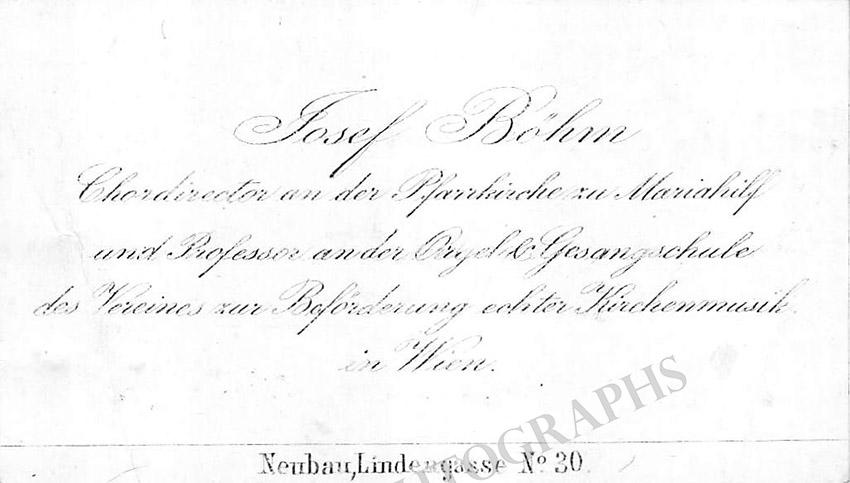 Josef Böhm
Chordirector an der Pfarrkirche zu Mariahilf
und Professor an der Orgel & Gesangschule
des Vereines zur Beförderung echter Kirchenmusik
in Wien.
Neubau, Lindengasse No 30.
TOGRAPHS